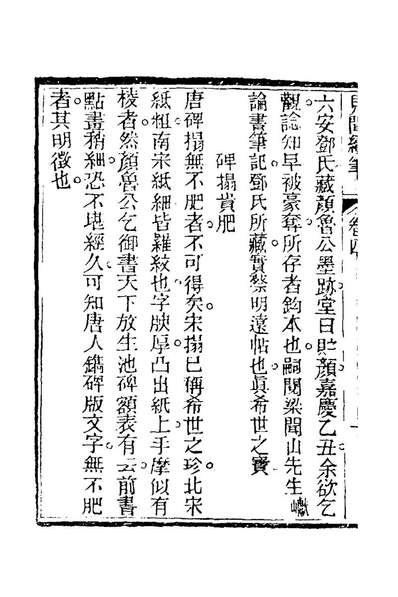 見聞續筆 卷四
六安鄧氏藏顏魯公墨跡堂曰貯顏嘉慶乙丑余欲乞
觀諗知早被豪奪所存者鉤本也嗣閱梁聞山先生巘
論書筆記鄧氏所藏實蔡明遠帖也眞希世之寶
碑搨貴肥
唐碑搨無不肥者不可得矣宋搨已稱希世之珍北宋
紙粗南宋紙細皆羅紋也字腴厚凸出紙上手摩似有
棱者然顏魯公乞御書天下放生池碑額表有云前書
點畫稍細恐不堪經久可知唐人鐫碑版文字無不肥
者其明徵也